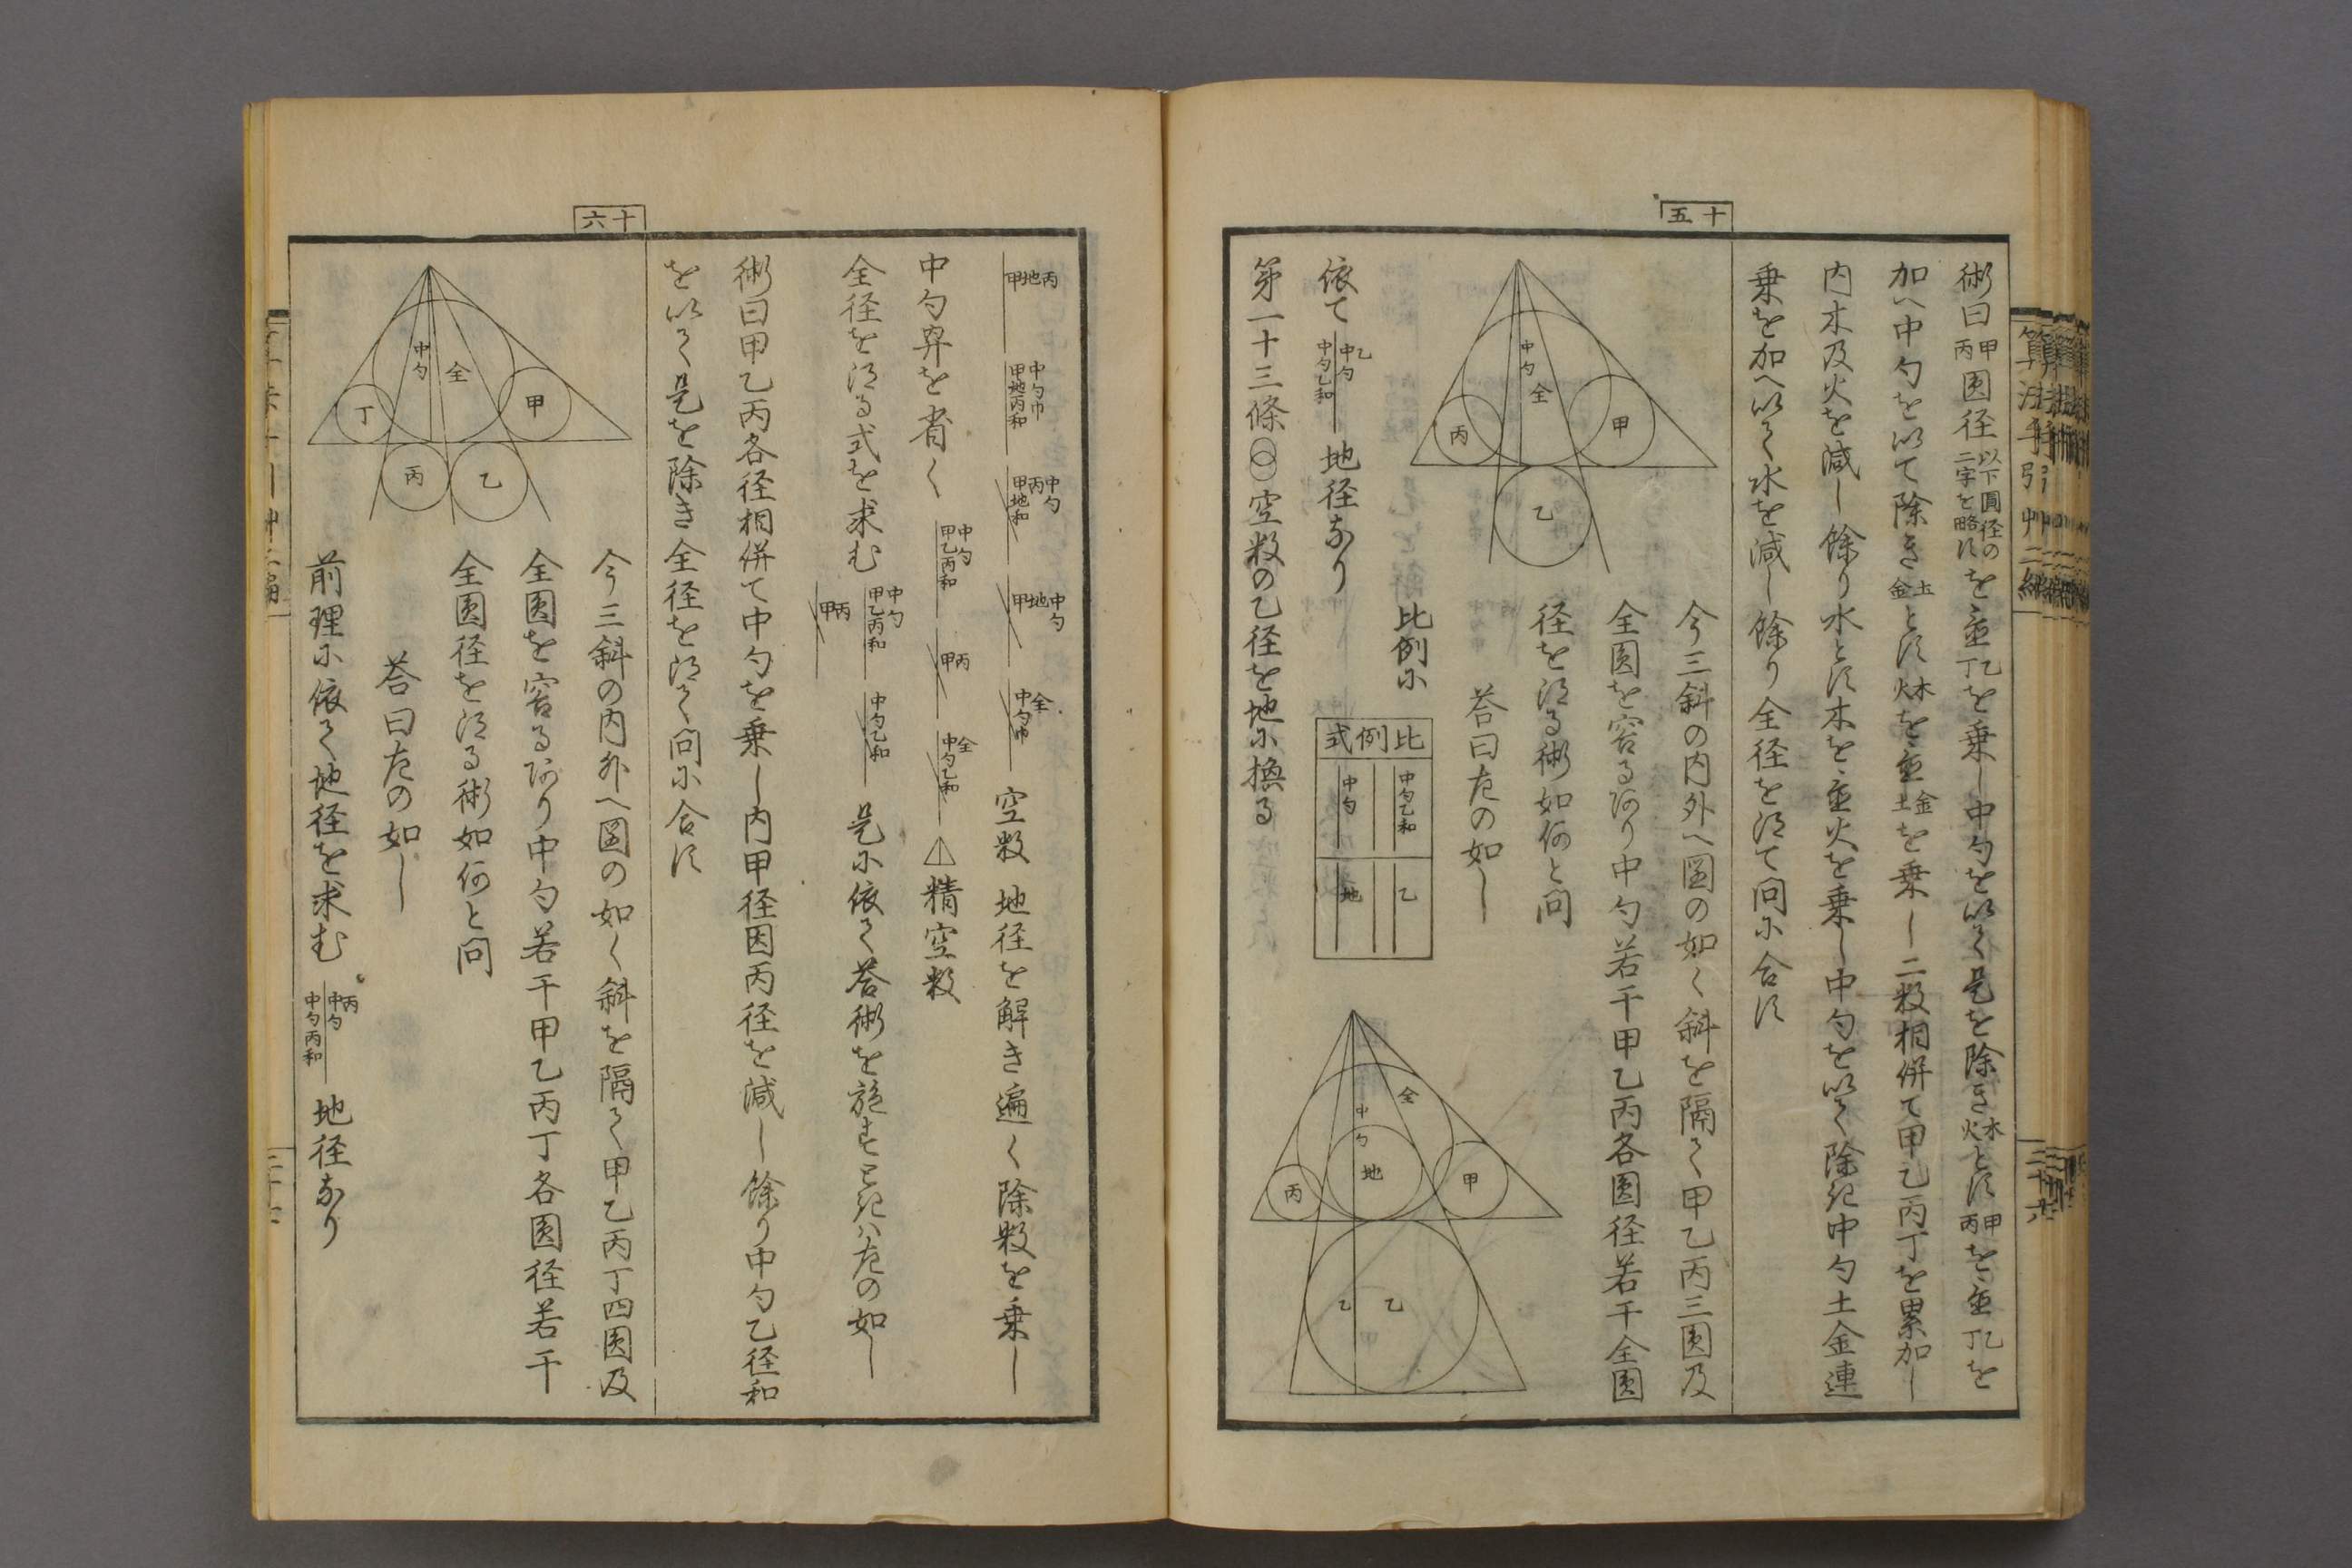 十五
術曰甲丙圓径以下圓径の二字を略すを並乙丁を乗し中勾を以て是を除き木火とす甲丙を並乙丁を
加へ中勾を以て除き土金とす木火を並金土を乗し二数相併て甲乙丙丁を累加し
内木及火を減し餘り水とす木を並火を乗し中勾を以て除き中勾土金連
乗を加へ以て水を減し餘り全径を得て問に合す
中勾
全
甲
丙
乙
今三斜の内外へ図の如く斜を隔て甲乙丙三圓及
全圓を容る有り中勾若干甲乙丙各圓径若干全圓
径を得る術如何と問
答曰左の如し
比例に
比例式
中勾乙和
乙
中勾
地
全
中勾
地
甲
丙
乙
乙
依て
中勾乙
中勾乙和
地径なり
第一十三條 空数の乙径を地に換る
十六
甲地丙
中勾巾
甲地丙和
中勾丙
甲地和
中勾
甲地
全
中勾巾
空数 地径を解き遍く除数を乗し
中勾冪を省く
中勾
甲乙丙和
甲丙
全
中勾乙和
精空数
全径を得る式を求む
中勾
甲乙丙和
甲丙
中勾乙和
是に依て答術を施すときハ左の如し
術曰甲乙丙各径相併て中勾を乗し内甲径因丙径を減し餘り中勾乙径和
を以て是を除き全径を得て問に合す
中勾
全
甲
丁
丙
乙
今三斜の内外へ図の如く斜を隔て甲乙丙丁四圓及
全圓を容る有り中勾若干甲乙丙丁各圓径若干
全圓径を得る術如何と問
答曰左の如し
前理に依て地径を求む
中勾丙
中勾丙和
地径なり